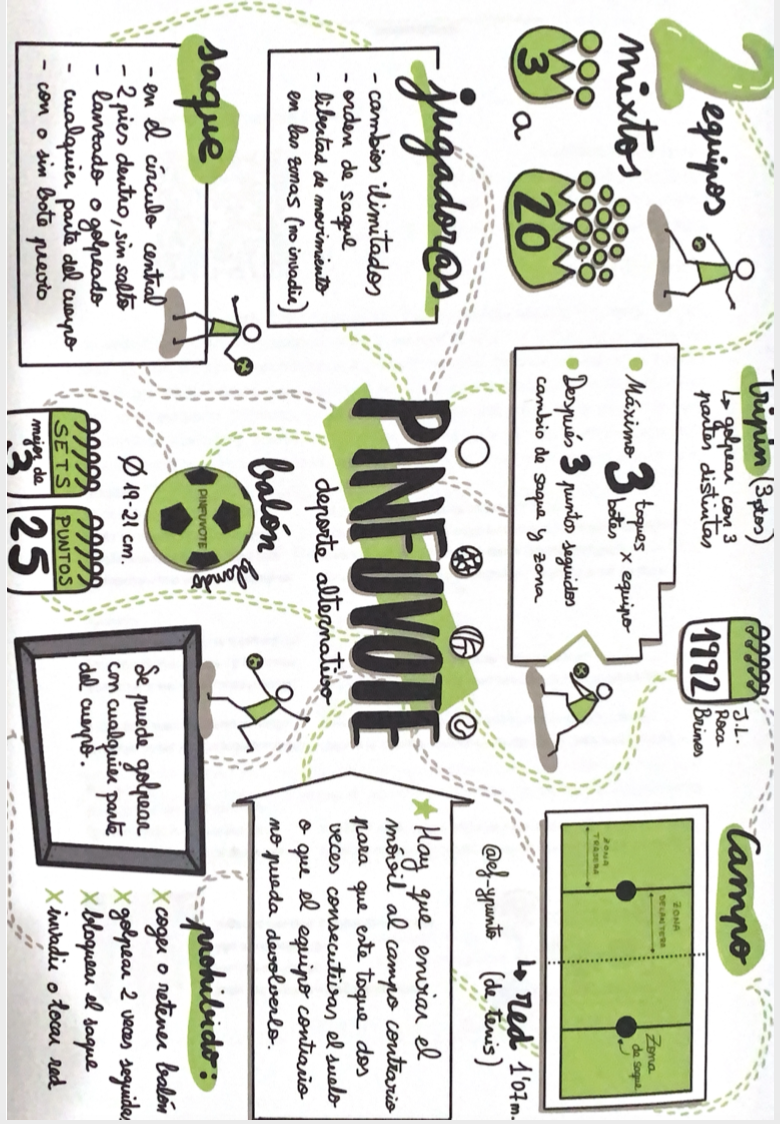 2 equipos
mixtos
3 a 20
Tripin (3 ptos)
↳ golpear con 3
partes distintas
1992
J.L.
Roca
Briones
Campo
ZONA
TRASERA
ZONA
DELANTERA
Zona
de saque
↳ red 1'07 m.
(de tenis)
@ef-ypunto
• Máximo 3 toques
botes x equipo
• Después 3 puntos seguidos
cambio de saque y zona
jugador@s
- cambios ilimitados
- orden de saque
- libertad de movimiento
en las zonas (no invadir)
PINFUVOTE
deporte alternativo
★ Hay que enviar el
móvil al campo contrario
para que este toque dos
veces consecutivas el suelo
o que el equipo contrario
no pueda devolverlo.
saque
- en el círculo central
- 2 pies dentro, sin salto
- lanzado o golpeado
- cualquier parte del cuerpo
- con o sin bote previo
balón
blando
PINFUVOTE
Ø 19-21 cm.
SETS
mejor de
3
PUNTOS
25
Se puede golpear
con cualquier parte
del cuerpo.
prohibido:
X coger o retener balón
X golpear 2 veces seguidas
X bloquear el saque
X invadir o tocar red